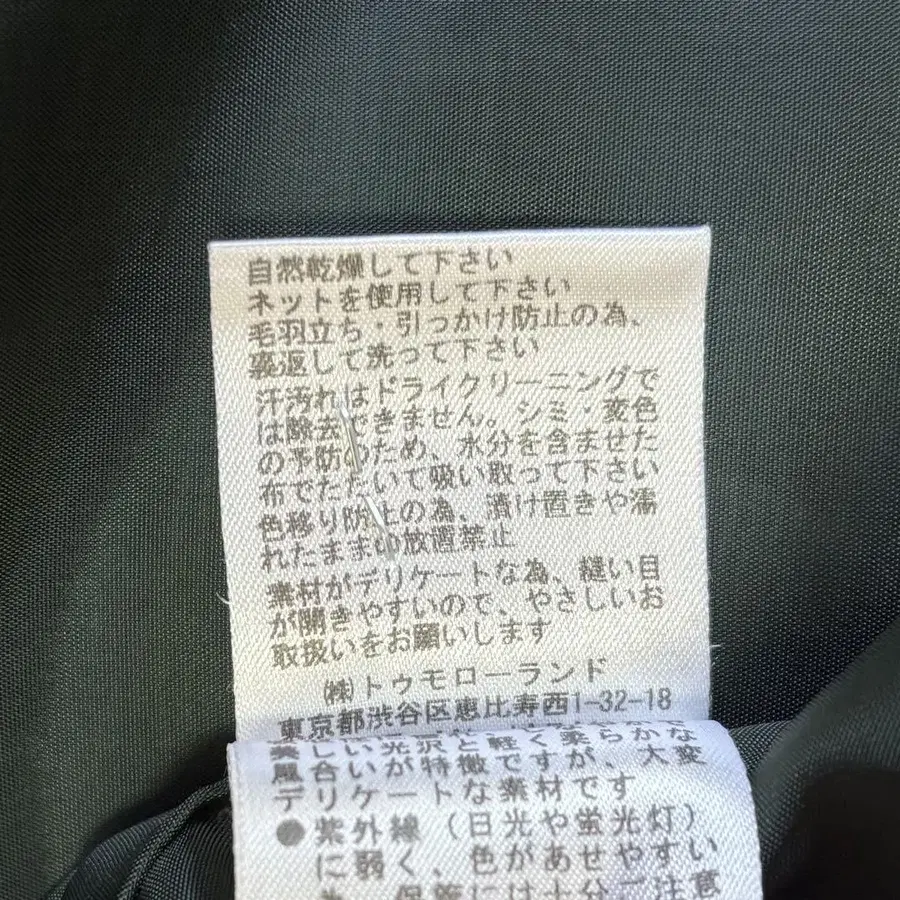 自然乾燥して下さい
ネットを使用して下さい
毛羽立ち・引っかけ防止の為、
裏返して洗って下さい
汗汚れはドライクリーニングで
は除去できません。シミ・変色
の予防のため、水分を含ませた
布でたたいて吸い取って下さい
色移り防止の為、漬け置きや濡
れたままの放置禁止
素材がデリケートな為、縫い目
が開きやすいので、やさしいお
取扱いをお願いします
㈱トゥモローランド
東京都渋谷区恵比寿西1-32-18
美しい光沢と軽く柔らかな
風合いが特徴ですが、大変
デリケートな素材です
●紫外線（日光や蛍光灯）
に弱く、色があせやすい
保管には十分ご注意